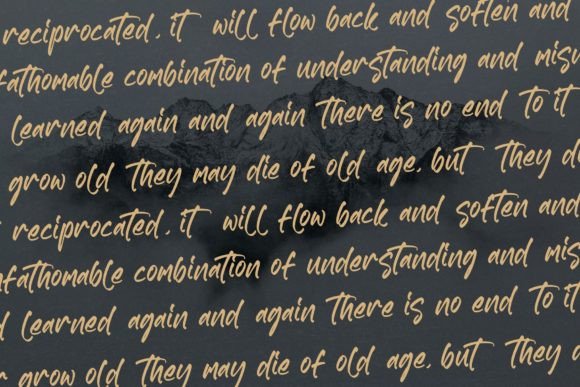 reciprocated, it will flow back and soften and
fathomable combination of understanding and
learned again and again there is no end to it
grow old They may die of old age, but They
reciprocated, it will flow back and soften and
combination of understanding and
learned again and again There is no end to it
grow old They may die of old age, but They